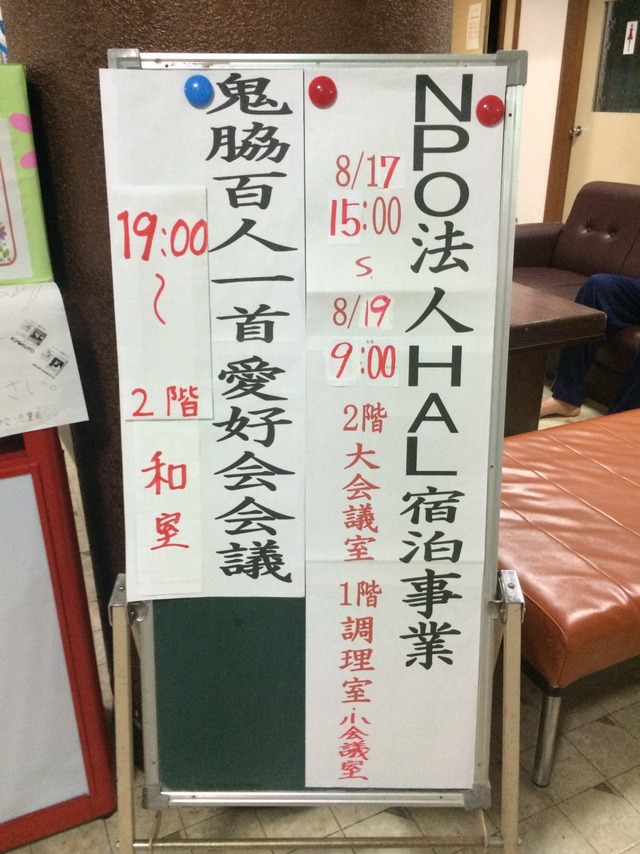 NPO法人HAL宿泊事業
8/17
15:00
〜
8/19
9:00
2階
大会議室
1階
調理室・小会議室
鬼脇百人一首愛好会会議
19:00
〜
2階
和室